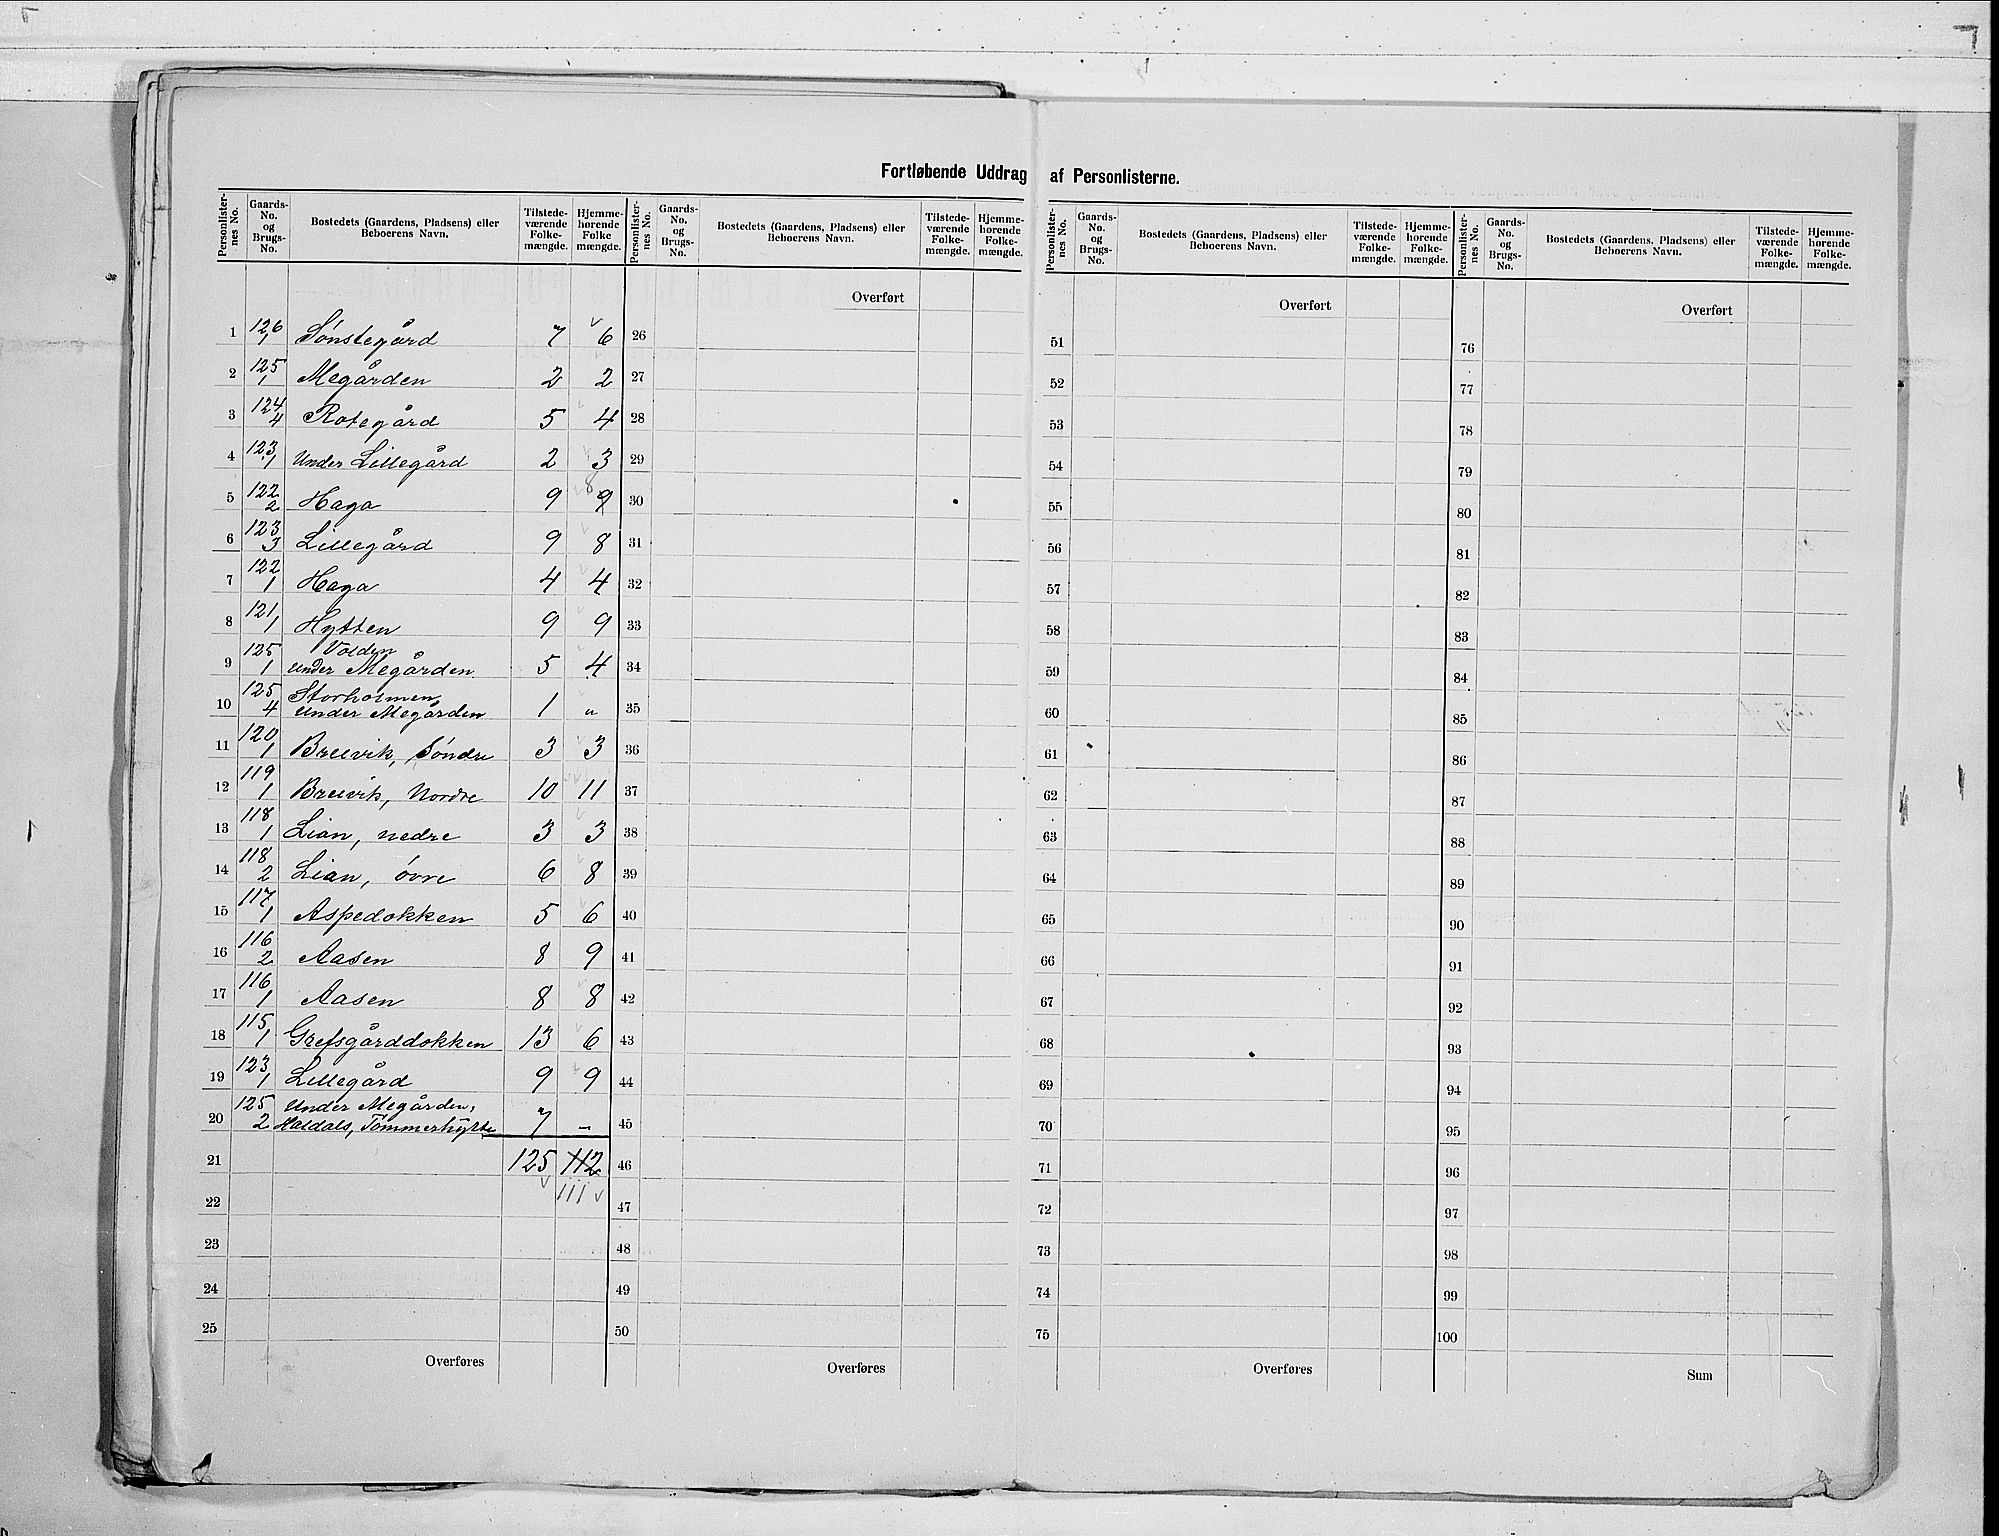 Fortløbende Uddrag af Personlisterne.
Personlister-nes No. | Gaards-No. og Brugs-No. | Bostedets (Gaardens, Pladsens) eller Beboerens Navn. | Tilstede-værende Folke-mængde. | Hjemme-hørende Folke mængde.
Personlister-nes No. | Gaards-No. og Brugs-No. | Bostedets (Gaardens, Pladsens) eller Beboerens Navn. | Tilstede-værende Folke-mængde. | Hjemme-hørende Folke-mængde.
Personlister-nes No. | Gaards-No. og Brugs-No. | Bostedets (Gaardens, Pladsens) eller Beboerens Navn. | Tilstede-værende Folke-mængde. | Hjemme-hørende Folke-mængde.
Personlister-nes No. | Gaards-No. og Brugs-No. | Bostedets (Gaardens, Pladsens) eller Beboerens Navn. | Tilstede-værende Folke-mængde. | Hjemme-hørende Folke-mængde.
Overført Overført Overført
1 126/1 Sönstegård 7 6 26 51 76
2 125/1 Megården 2 2 27 52 77
3 124/4 Rotegård 5 4 28 53 78
4 123/1 Under Lillegård 2 3 29 54 79
5 122/2 Haga 9 8 9 30 55 80
6 123/3 Lillegård 9 8 31 56 81
7 122/1 Haga 4 4 32 57 82
8 121/1 Hytten 9 9 33 58 83
9 125/1 Volden under Megården 5 4 34 59 84
10 125/4 Storholmen under Megården 1 " 35 60 85
11 120/1 Breivik, Söndre 3 3 36 61 86
12 119/1 Breivik, Nordre 10 11 37 62 87
13 118/1 Lian, nedre 3 3 38 63 88
14 118/2 Lian, övre 6 8 39 64 89
15 117/1 Aspedokken 5 6 40 65 90
16 116/2 Aasen 8 9 41 66 91
17 116/1 Aasen 8 8 42 67 92
18 115/1 Grefsgårddokken 13 6 43 68 93
19 123/1 Lillegård 9 9 44 69 94
20 125/2 Under Megården, Haldals, Tömmerhytte 7 - 45 70 95
21 125 112 46 71 96
22 111 47 72 97
23 48 73 98
24 49 74 99
25 50 75 100
Overføres Overføres Overføres Sum